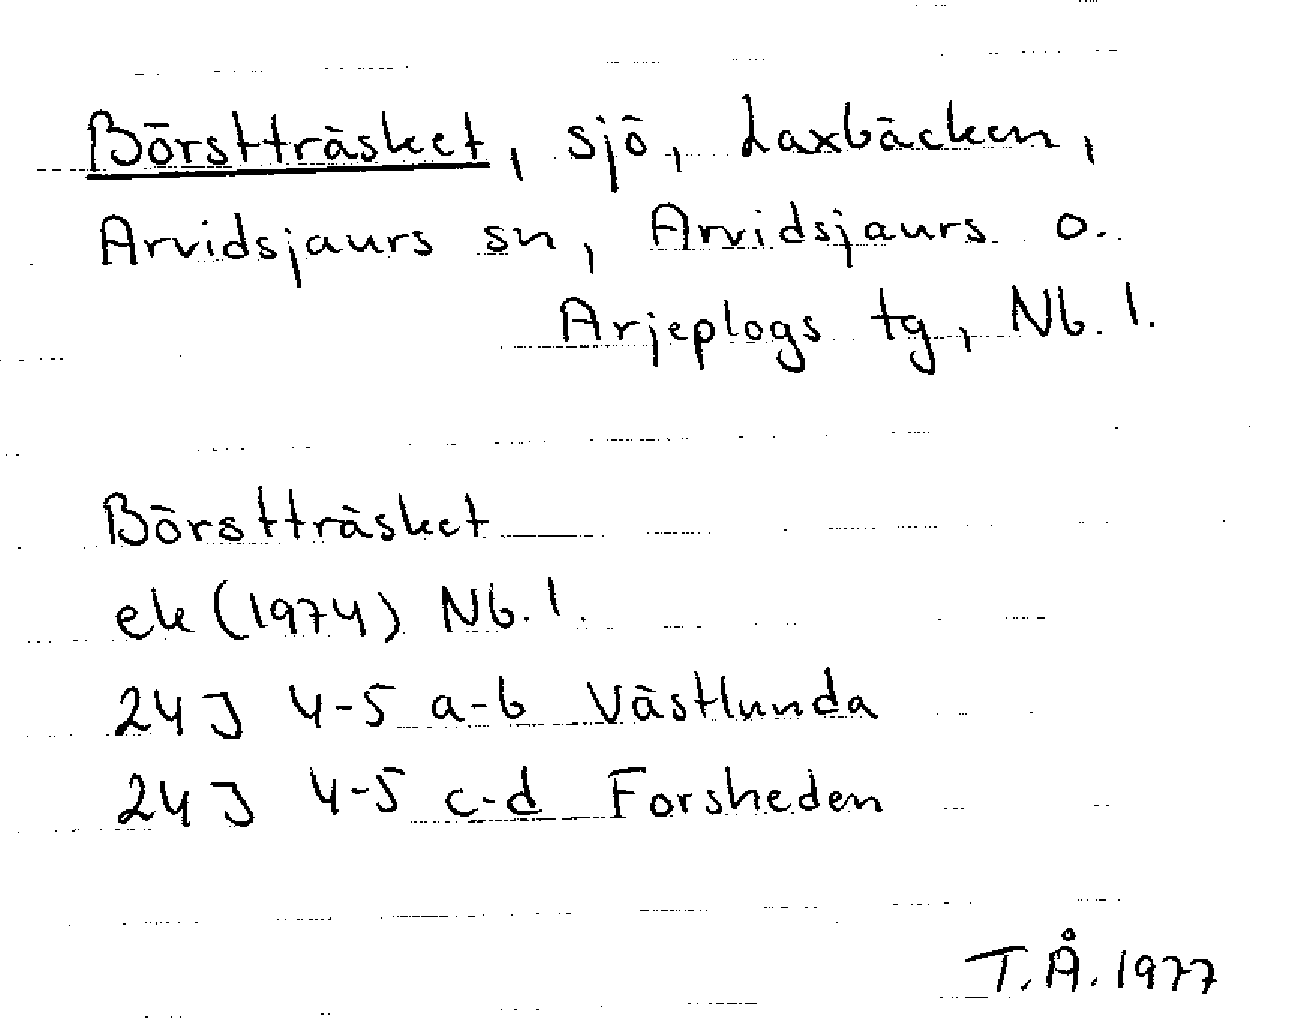 Börstträsket, sjö, Laxbäcken,
Arvidsjaurs sn, Arvidsjaurs o.
Arjeplogs tg, Nb. l.
Börstträsket
ek (1974) Nb. l.
24 J 4-5 a-b Västlunda
24 J 4-5 c-d Forsheden
T.Å. 1977